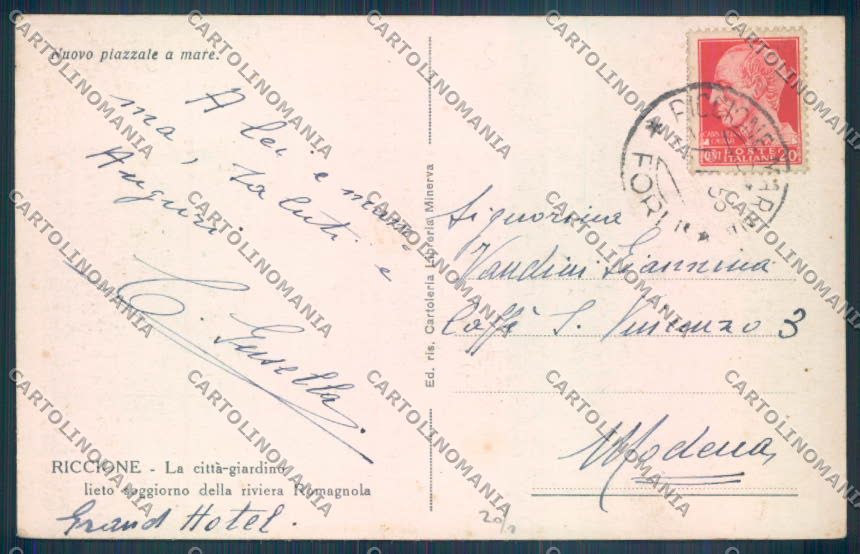 Nuovo piazzale a mare.
A lei e mam=
ma, saluti e
Auguri
RICCIONE - La città-giardino
lieto soggiorno della riviera Romagnola
Grand Hotel.
Ed. ris. Cartoleria Libreria Minerva
POSTE
ITALIANE
20
RICCIONE MAR
FORLI
Signorina
Vandini Giannina
Caffè S. Vincenzo 3
Modena
CARTOLINOMANIA